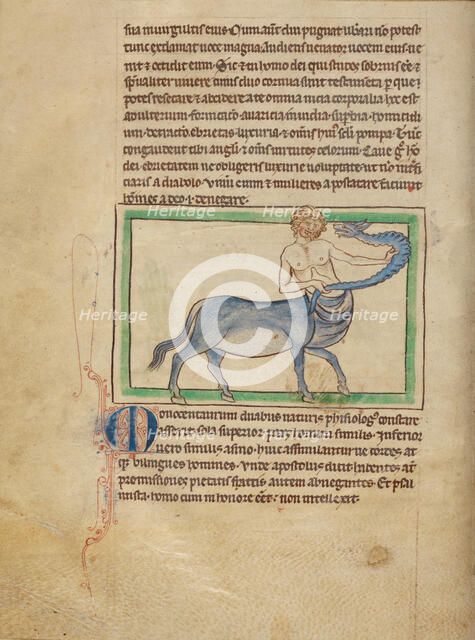 sua in virgultis eius. Qum autem diu pugnat liberari non potest
tunc exclamat uoce magna. Audiens uenator uocem eius ue
nit & occidit eum. Sic & tu homo dei qui stu sobrius esse &
uiuere cuius duo cornua sunt testamenta per que
potes resecare & abscidere a te omnia uicia corporalia hoc est
adulterium. fornicatio. auaricia. inuidia. supbia. homicidi
um. detractio. ebrietas. luxuria. & omnis huius seculi pompa. Tunc
congaudent tibi angeli & omnes uirtutes celorum. Caue ergo ho
dei ebrietatem ne obligeris luxurie uoluptate ut non
ciaris a diabolo. Vinum enim & mulieres apostatare faciunt
homines a deo .i. denegare.
Heritage
Heritage
Heritage
Heritage
Heritage
Monocentaurum duabus naturis phisiologus constare
asserit. sola superior pars homini similis. Inferior
uero similis asino. huic assimilantur uecordes. at
que bilingues homines. Vnde apostolus dicit habentes autem
promissiones pietatis factis autem abnegantes. Et psal
mista. homo cum in honore esset non intellexit.
Heritage
Heritage
Heritage